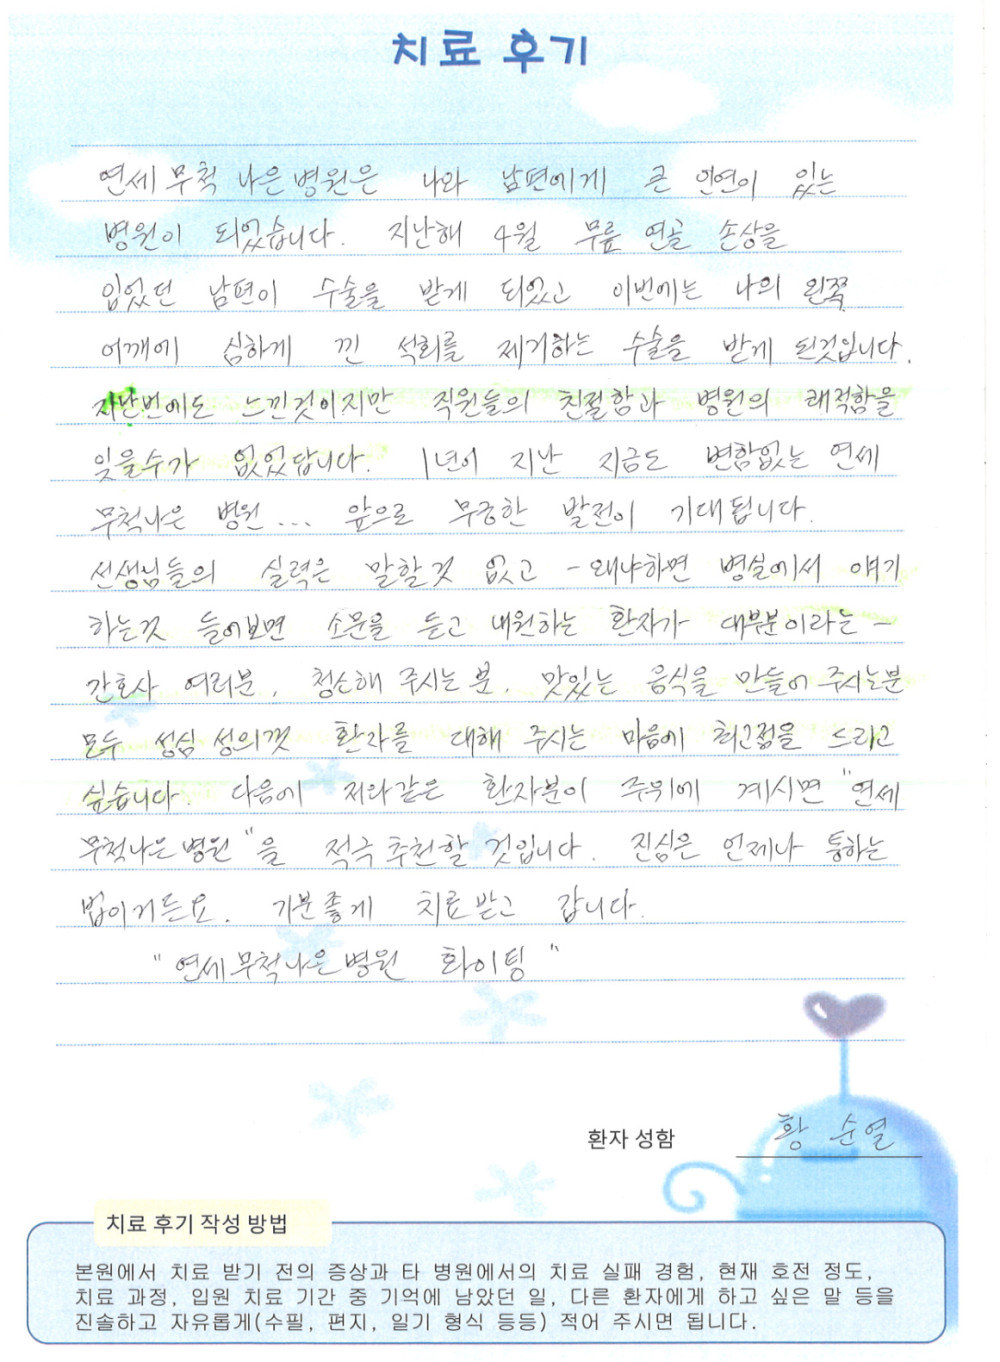 치료 후기
연세무척 나은병원은 나와 남편에게 큰 인연이 있는
병원이 되었습니다. 지난해 4월 무릎 연골 손상을
입었던 남편이 수술을 받게 되었고 이번에는 나의 왼쪽
어깨에 심하게 낀 석회를 제거하는 수술을 받게 된것입니다.
지난번에도 느낀것이지만 직원들의 친절함과 병원의 쾌적함을
잊을수가 없었답니다. 1년이 지난 지금도 변함없는 연세
무척나은 병원... 앞으로 무궁한 발전이 기대됩니다.
선생님들의 실력은 말할것 없고 - 왜냐하면 병실에서 얘기
하는것 들어보면 소문을 듣고 내원하는 환자가 대부분이라는 -
간호사 여러분, 청소해 주시는 분, 맛있는 음식을 만들어 주시는분
모두 성심 성의껏 환자를 대해 주시는 마음에 최고점을 드리고
싶습니다. 다음에 저와같은 환자분이 주위에 계시면 "연세
무척나은병원"을 적극 추천할 것입니다. 진심은 언제나 통하는
법이거든요. 기분좋게 치료받고 갑니다.
"연세무척나은병원 화이팅"
환자 성함 황 순열
치료 후기 작성 방법
본원에서 치료 받기 전의 증상과 타 병원에서의 치료 실패 경험, 현재 호전 정도,
치료 과정, 입원 치료 기간 중 기억에 남았던 일, 다른 환자에게 하고 싶은 말 등을
진솔하고 자유롭게(수필, 편지, 일기 형식 등등) 적어 주시면 됩니다.